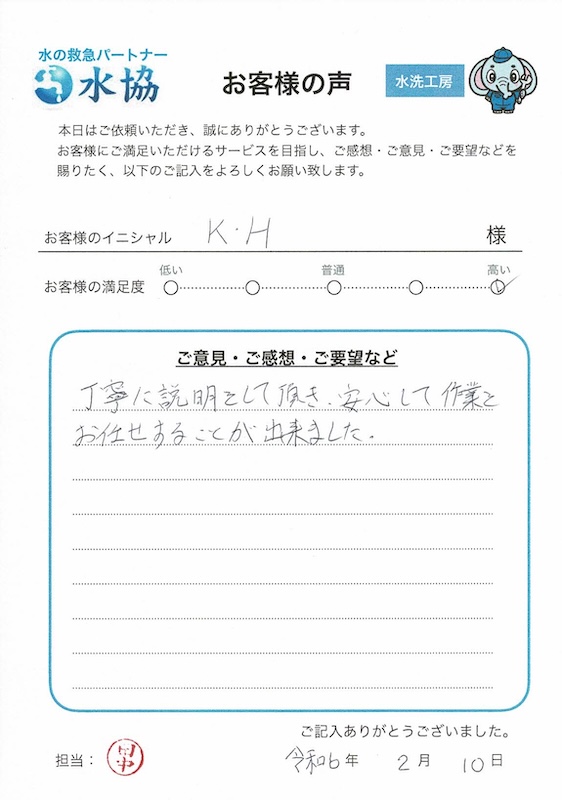 水の救急パートナー
水協
お客様の声
水洗工房
本日はご依頼いただき、誠にありがとうございます。
お客様にご満足いただけるサービスを目指し、ご感想・ご意見・ご要望などを
賜りたく、以下のご記入をよろしくお願い致します。
お客様のイニシャル K・H 様
低い 普通 高い
お客様の満足度
ご意見・ご感想・ご要望など
丁寧に説明をして頂き、安心して作業を
お任せすることが出来ました。
ご記入ありがとうございました。
担当： 田中 令和6年 2月 10日